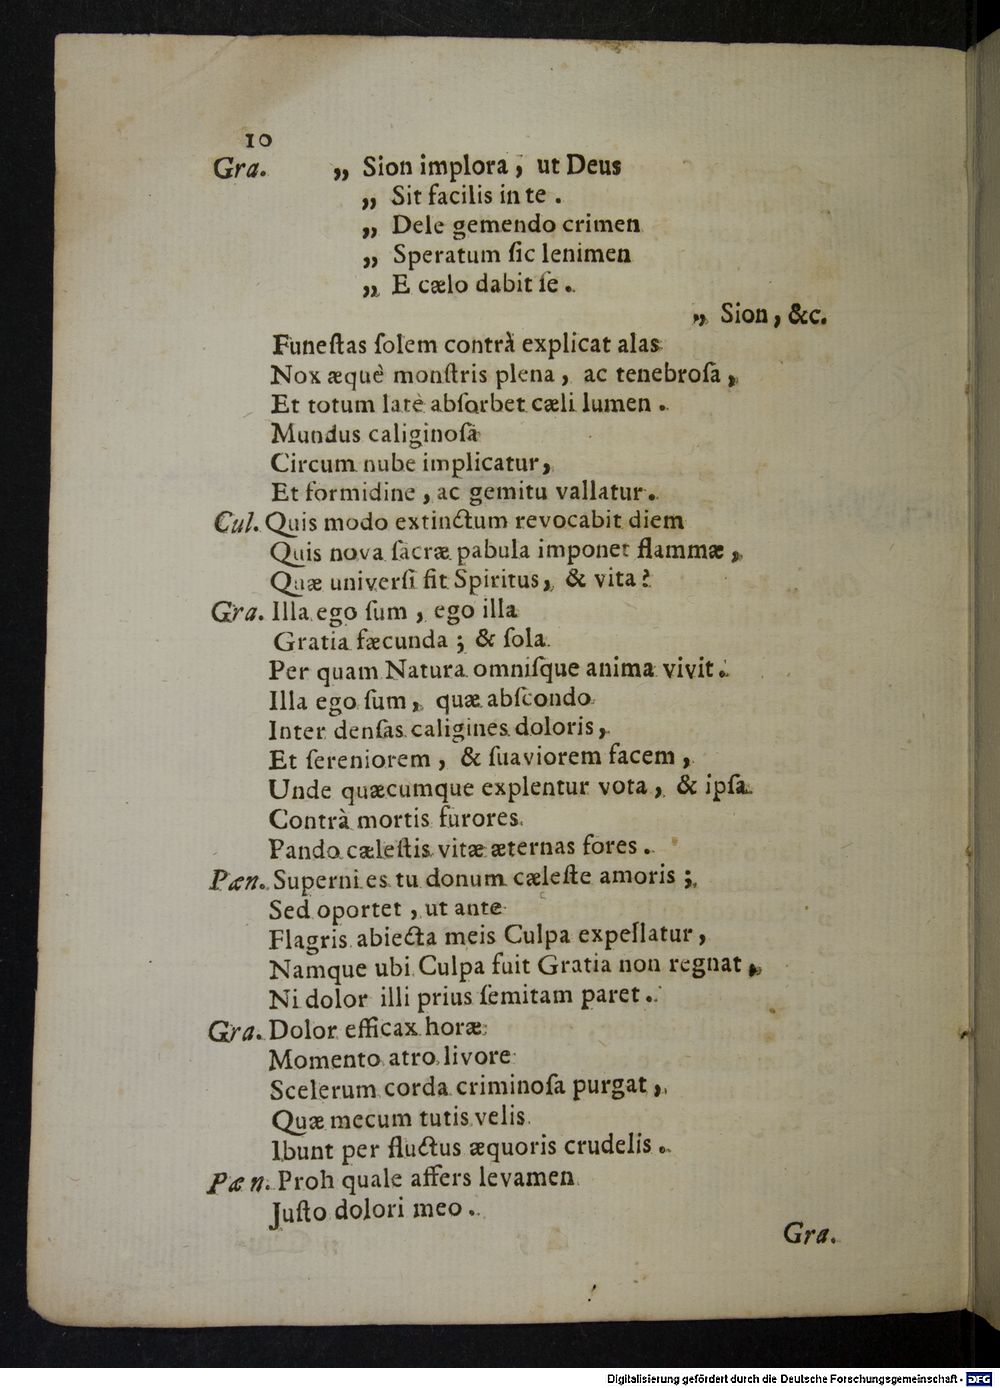 10
Gra. „ Sion implora, ut Deus
„ Sit facilis in te.
„ Dele gemendo crimen
„ Speratum ſic lenimen
„ E cælo dabit ſe.
„ Sion, &c.
Funeſtas ſolem contrà explicat alas
Nox æquè monſtris plena, ac tenebroſa,
Et totum latè abſorbet cæli lumen.
Mundus caliginoſâ
Circum nube implicatur,
Et formidine, ac gemitu vallatur.
Cul. Quis modo extinctum revocabit diem
Quis nova ſacræ pabula imponet flammæ,
Quæ univerſi ſit Spiritus, & vita?
Gra. Illa ego ſum, ego illa
Gratia fæcunda; & ſola
Per quam Natura omniſque anima vivit.
Illa ego ſum, quæ abſcondo
Inter denſas caligines doloris,
Et ſereniorem, & ſuaviorem facem,
Unde quæcumque explentur vota, & ipſa
Contrà mortis furores
Pando cæleſtis vitæ æternas fores.
Pæn. Superni es tu donum cæleſte amoris;
Sed oportet, ut ante
Flagris abiecta meis Culpa expellatur,
Namque ubi Culpa fuit Gratia non regnat,
Ni dolor illi prius ſemitam paret.
Gra. Dolor efficax horæ
Momento atro livore
Scelerum corda criminoſa purgat,
Quæ mecum tutis velis
Ibunt per fluctus æquoris crudelis.
Pæn. Proh quale affers levamen
Juſto dolori meo.
Gra.
Digitalisierung gefördert durch die Deutsche Forschungsgemeinschaft - DFG